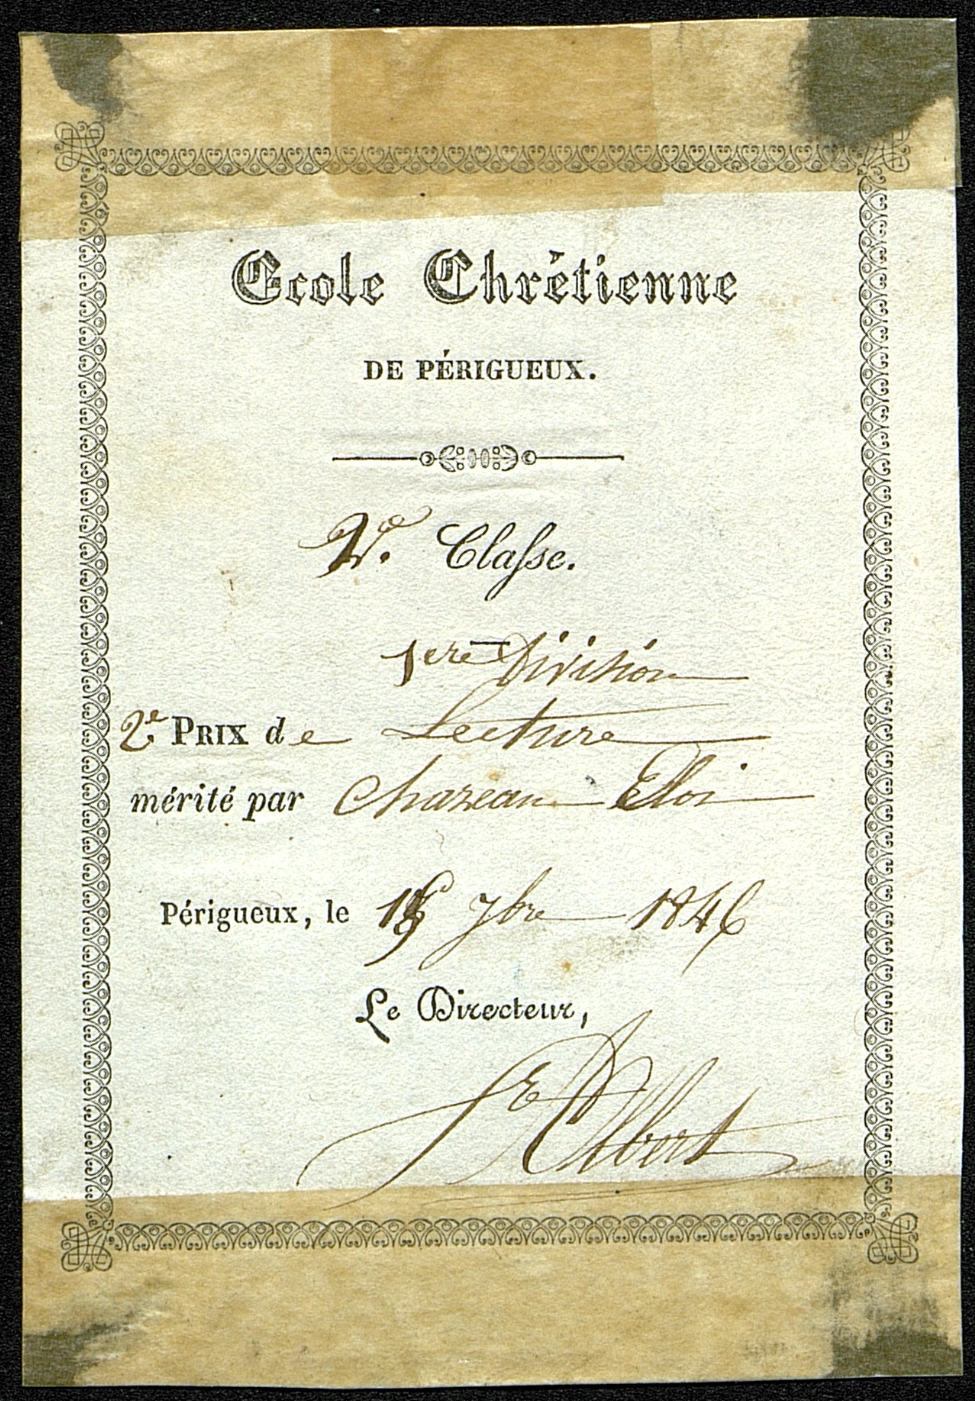 Ecole Chrétienne
DE PÉRIGUEUX.
2.de Classe.
1ere Division
2e PRIX de Lecture
mérité par Chazeau Eloi
Périgueux, le 7bre 1846
Le Directeur,
fr Albert